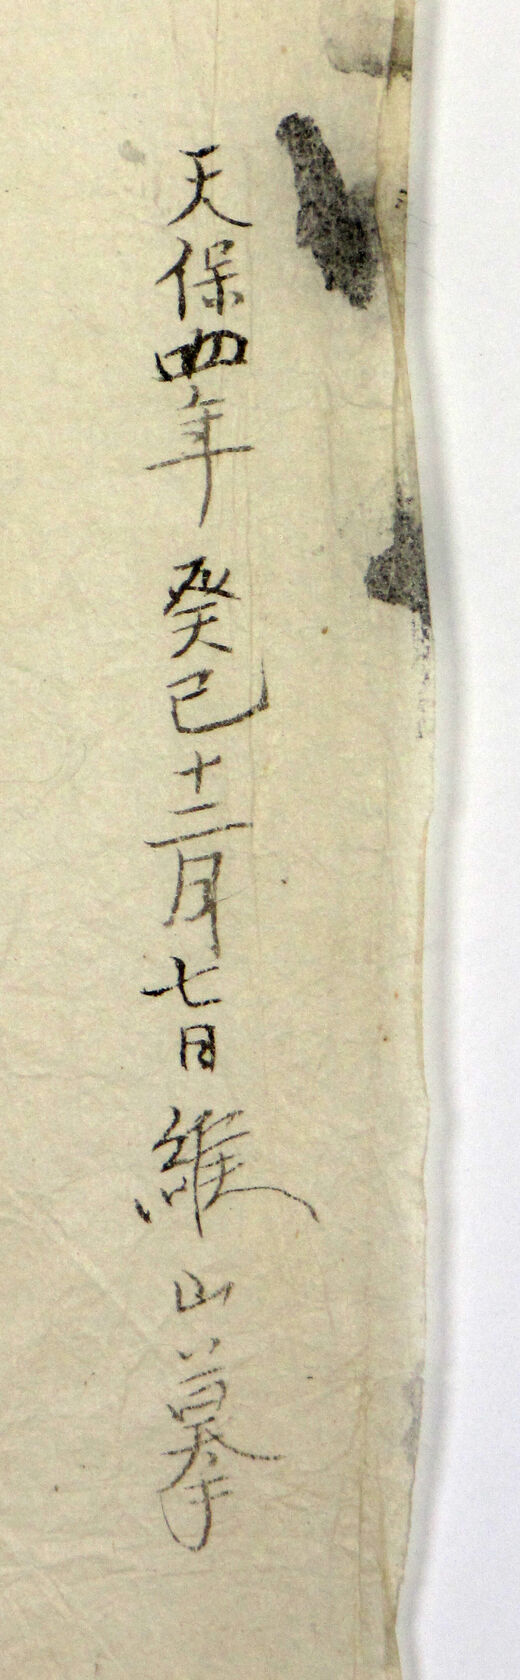 天保四年癸巳十二月七日維山摹